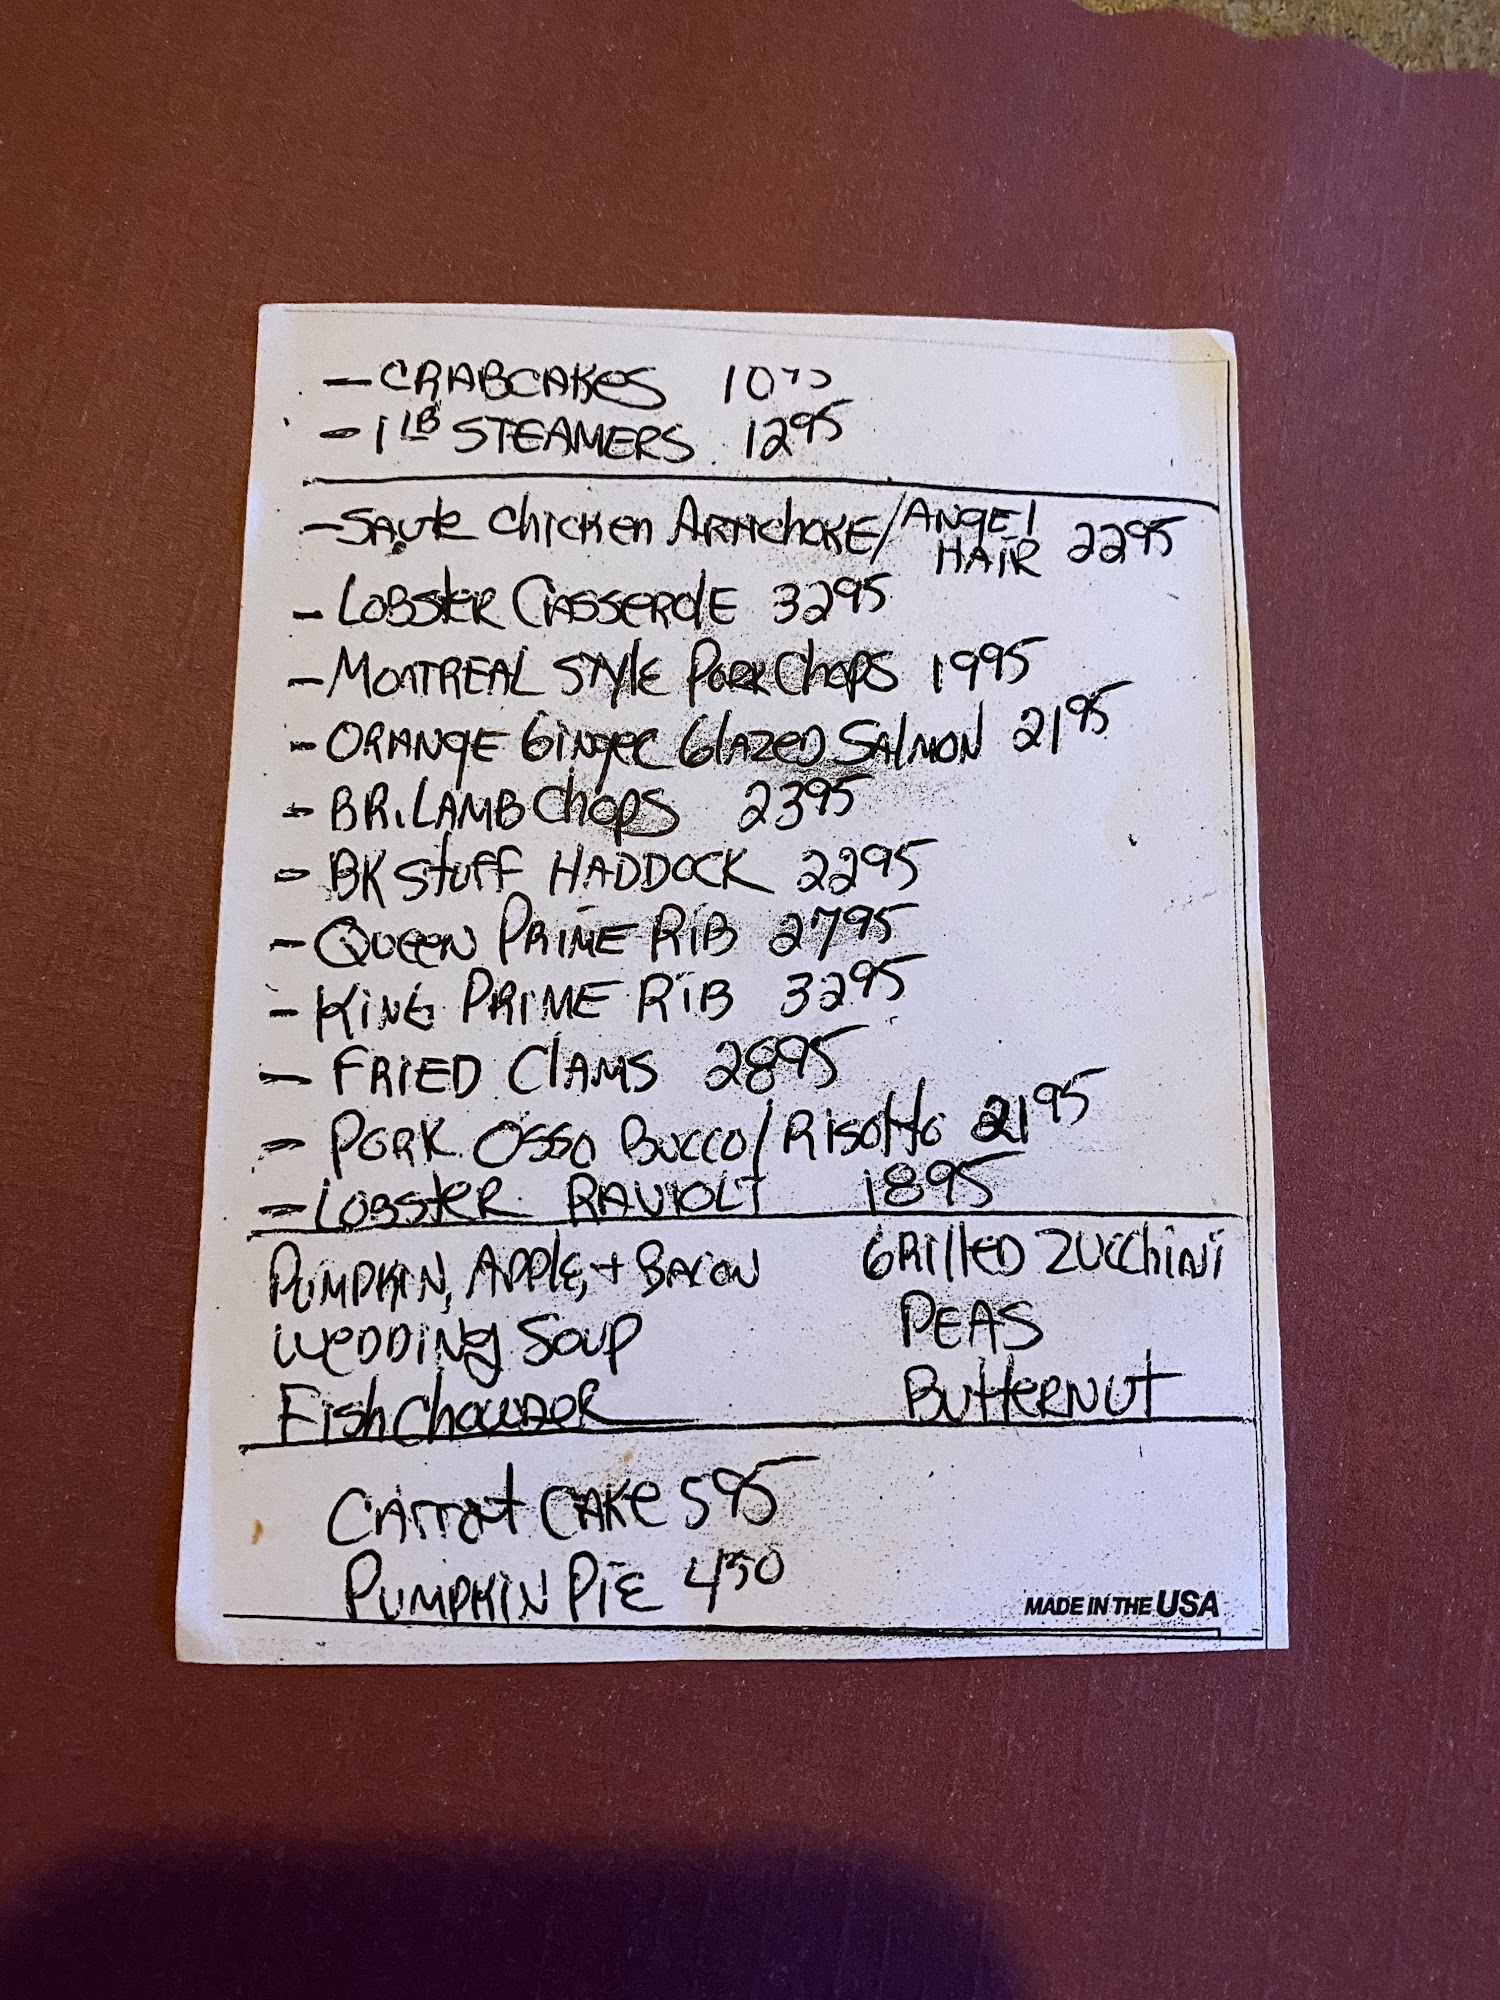 - CRABCAKES
- 1 LB STEAMERS 1295
- Saute Chicken Artichoke/ANGEL HAIR 2295
- LOBSTER CASSEROLE 3295
- MONTREAL STYLE PORK Chops 1995
- ORANGE Ginger Glazed SALMON 2195
- BR. LAMB Chops 2395
- BK Stuff HADDOCK 2295
- QUEEN PRIME RIB 2795
- KING PRIME RIB 3295
- FRIED CLAMS 2895
- PORK OSSO BUCCO/RISOTTO 2195
- LOBSTER RAVIOLI 1895
PUMPKIN, APPLE, + BACON
WEDDING SOUP
Fish Chowder
GRILLED ZUCCHINI
PEAS
BUTTERNUT
CARROT CAKE 595
PUMPKIN PIE 450
MADE IN THE USA